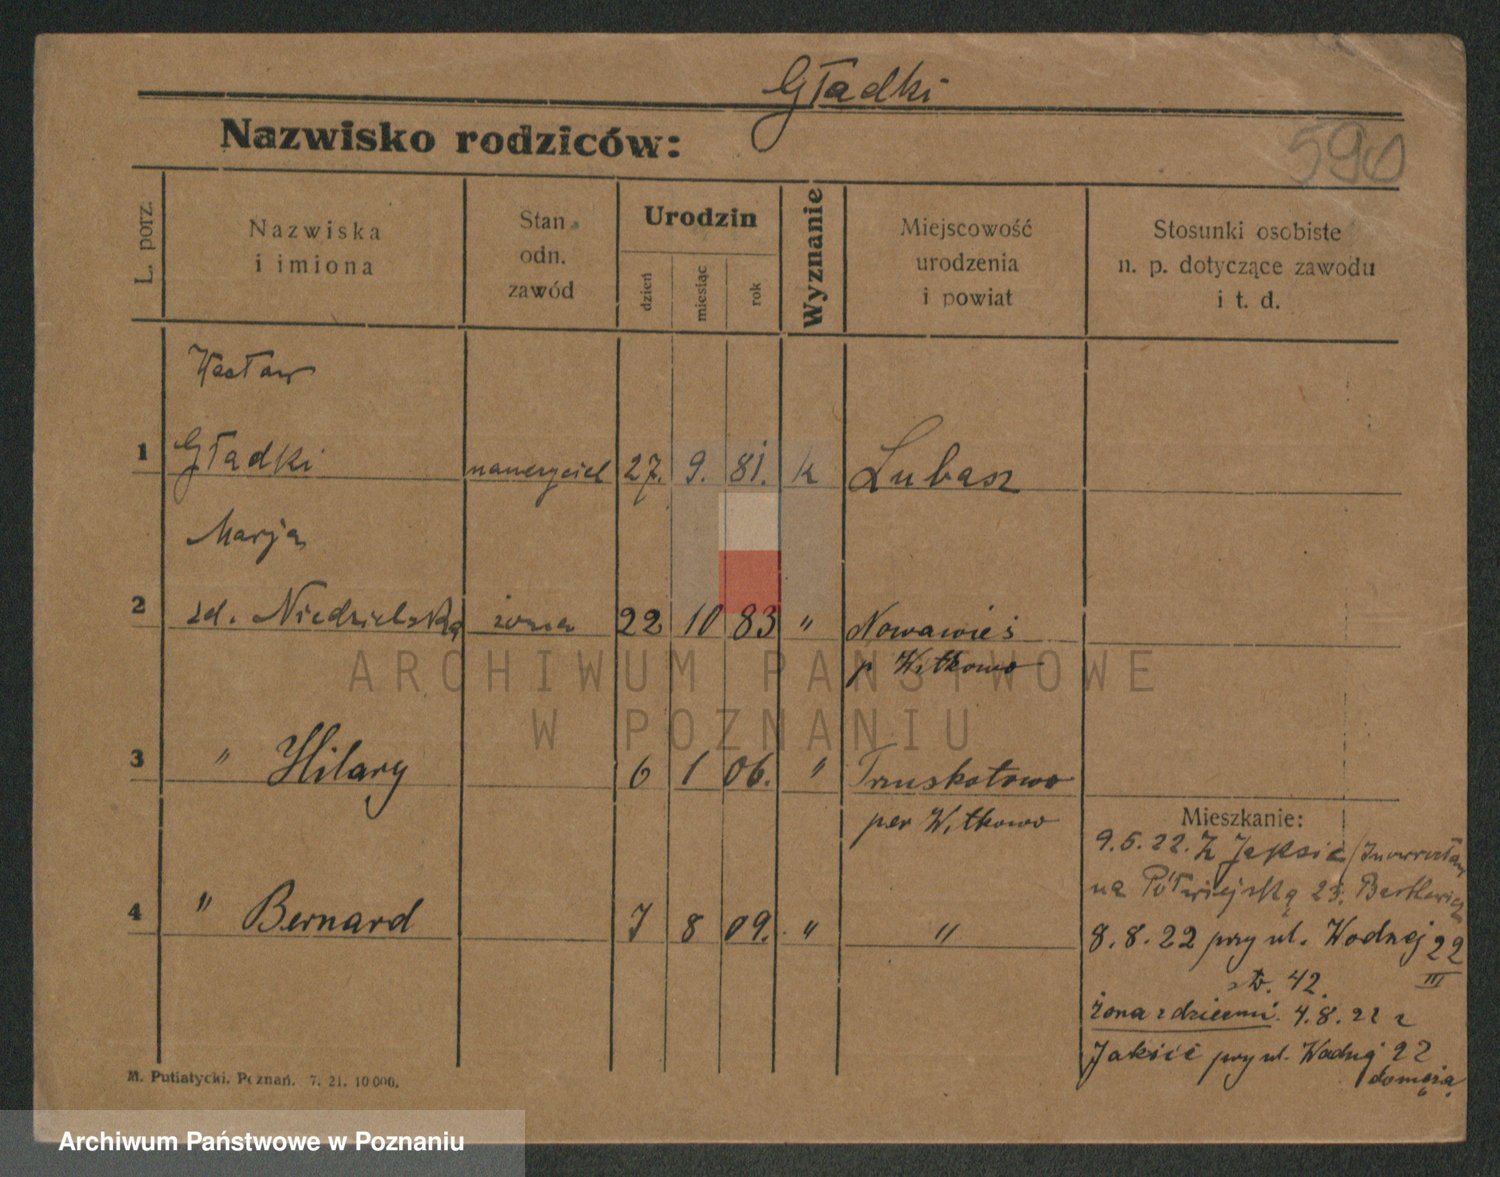 Gładki
Nazwisko rodziców:
590
L. porz.
Nazwiska
i imiona
Stan
odn.
zawód
Urodzin
dzień
miesiąc
rok
Wyznanie
Miejscowość
urodzenia
i powiat
Stosunki osobiste
n. p. dotyczące zawodu
i t. d.
Wacław
1 Gładki nauczyciel 27. 9. 81. k Lubasz
Marja
2 zd. Niedzielska żona 22 10 83 " Nowawieś
p Witkowo
3 " Hilary 6 1 06. " Truskotowo
per Witkowo
Mieszkanie:
9.5.22. Z Jaksic / Inowrocław
na Półwiejską 25. Bartkowiak
4 " Bernard 7 8 09. " "
8.8.22 przy ul. Wodnej 22
III
str. 42.
żona z dziećmi 4.8.22 z
Jaksic przy ul. Wodnej 22
do męża
M. Putiatycki. Poznań. 7. 21. 10 000.
ARCHIWUM PAŃSTWOWE
W POZNANIU
Archiwum Państwowe w Poznaniu